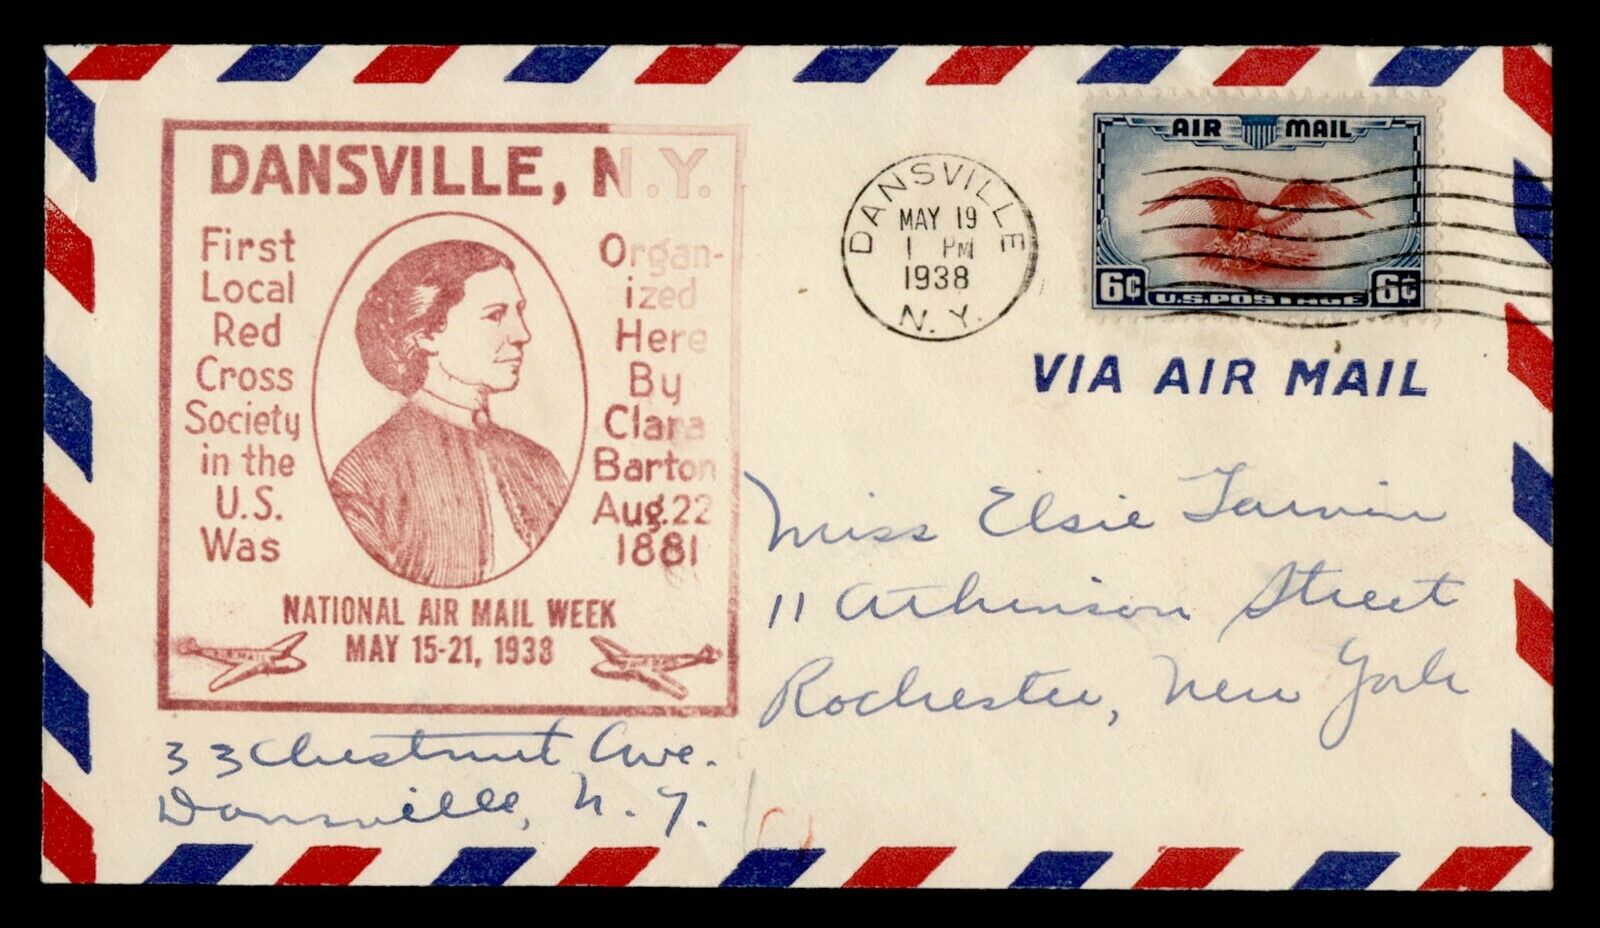 DANSVILLE, N.Y.
First
Local
Red
Cross
Society
in the
U.S.
Was
Organ-
ized
Here
By
Clara
Barton
Aug. 22
1881
NATIONAL AIR MAIL WEEK
MAY 15-21, 1938
AIR MAIL
DANSVILLE
MAY 19
1 PM
1938
N. Y.
AIR MAIL
6¢ U.S. POSTAGE 6¢
VIA AIR MAIL
Miss Elsie
11 Atkinson Street
Rochester, New York
33 Chestnut Ave.
Dansville, N. Y.